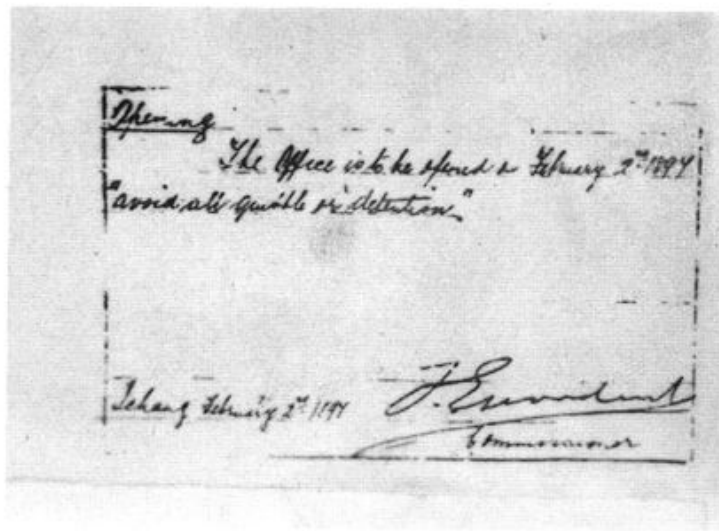 Opening
The Office is to be opened on February 2nd 1897
"avoid all quibble or detention"
Ichang February 2nd 1897
Commissioner